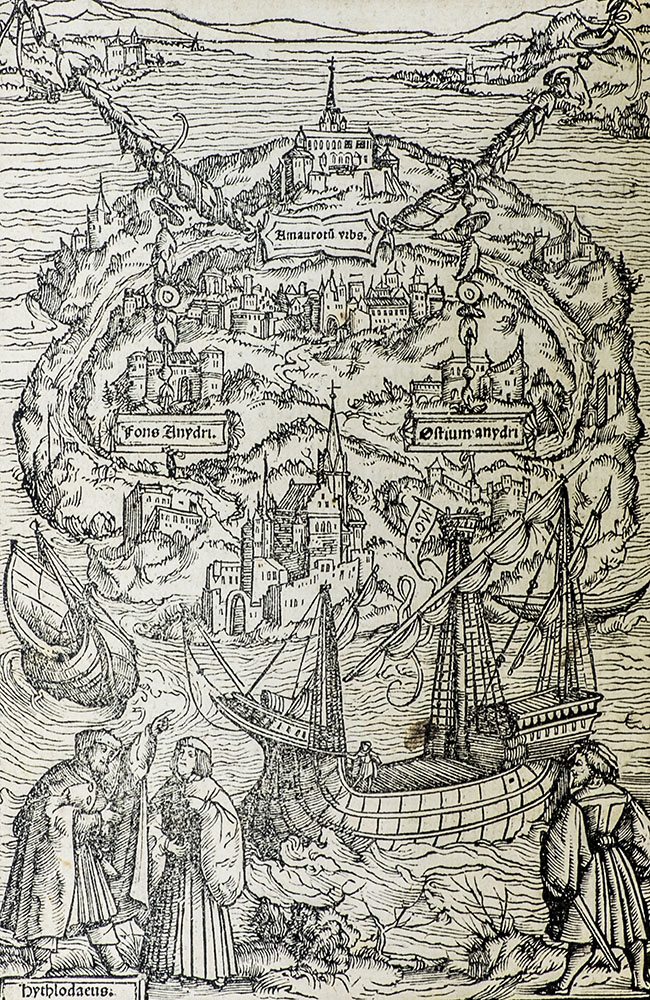 Amaurotū vrbs.
Fons Anydri.
Ostium anydri
hythlodaeus.